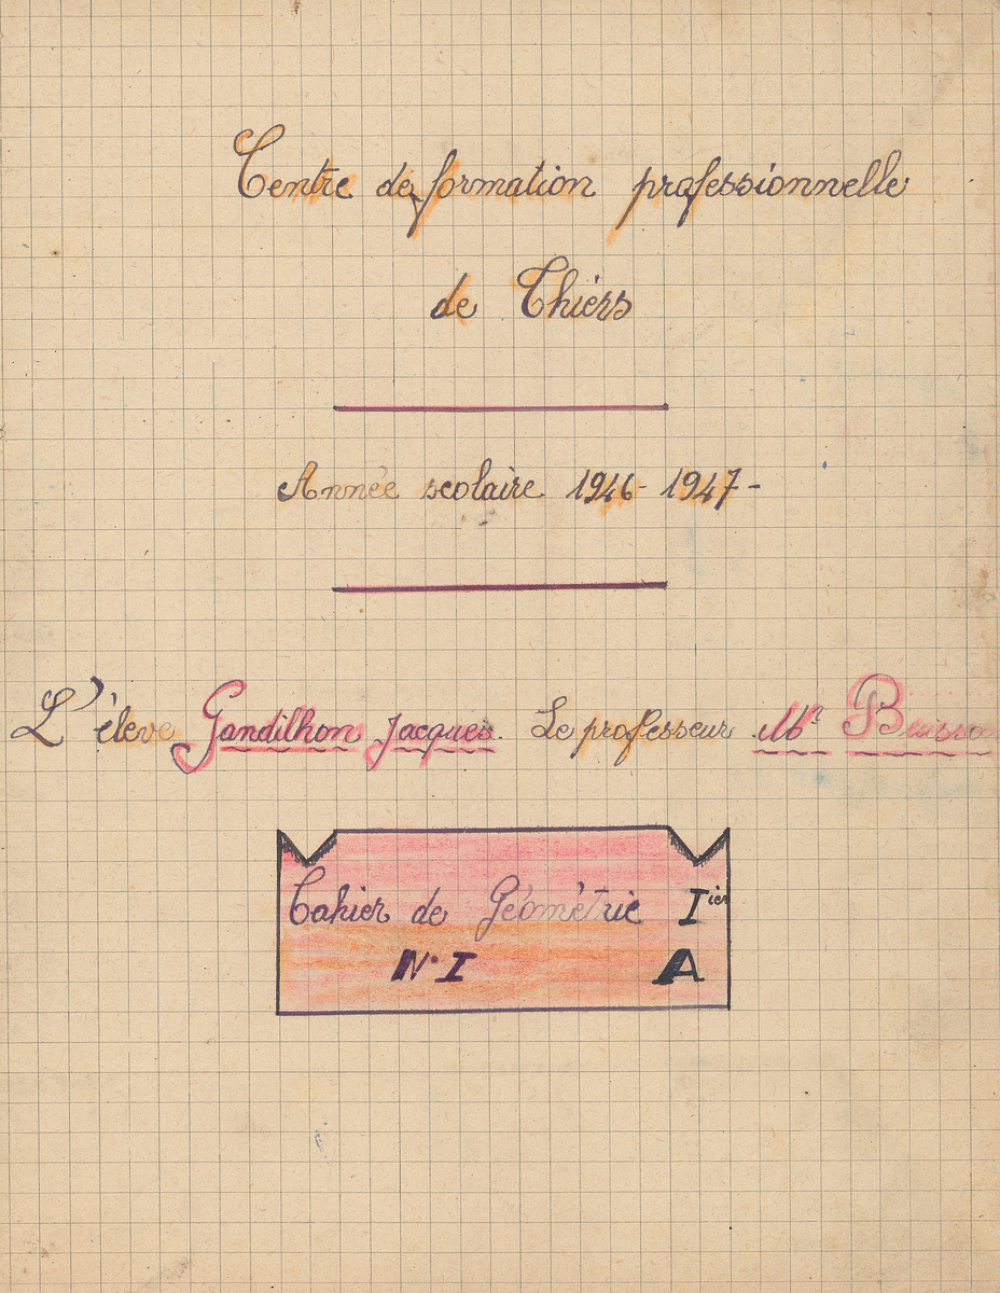 Centre de formation professionnelle
de Thiers
Année scolaire 1946-1947-
L'élève Gandilhon Jacques. Le professeur Mr
Cahier de Géométrie Iier
N° I A